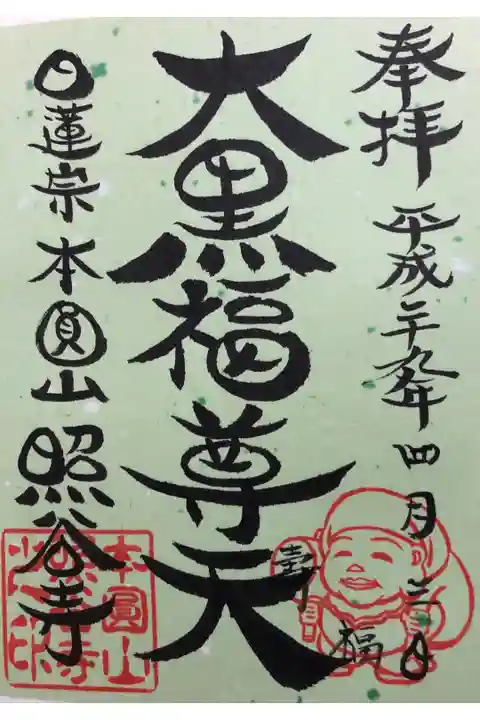 奉拝 平成二十九年四月三日
大黒福尊天
日蓮宗 本圓山 照谷寺
壽
福
本圓山